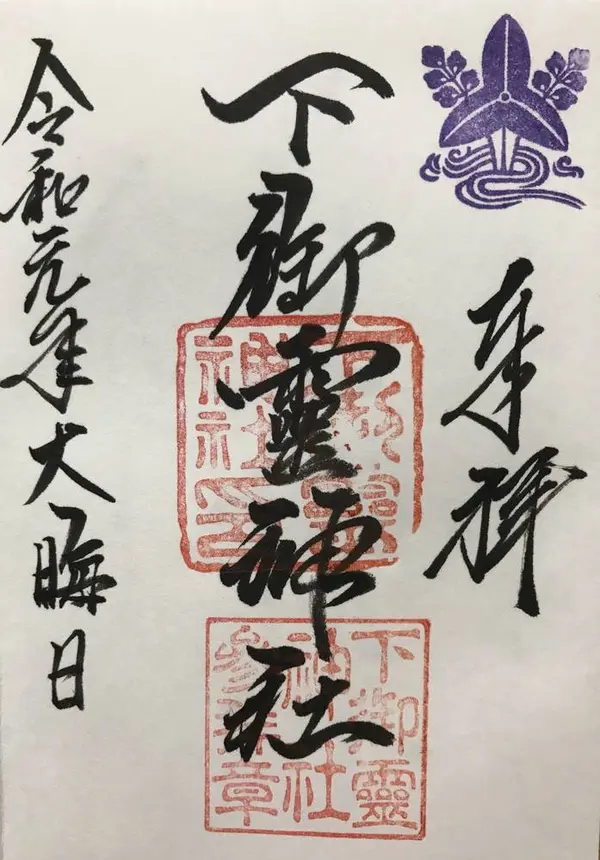 奉拝
下御霊神社
下御靈神社印
下御靈神社参拝章
令和元年大晦日